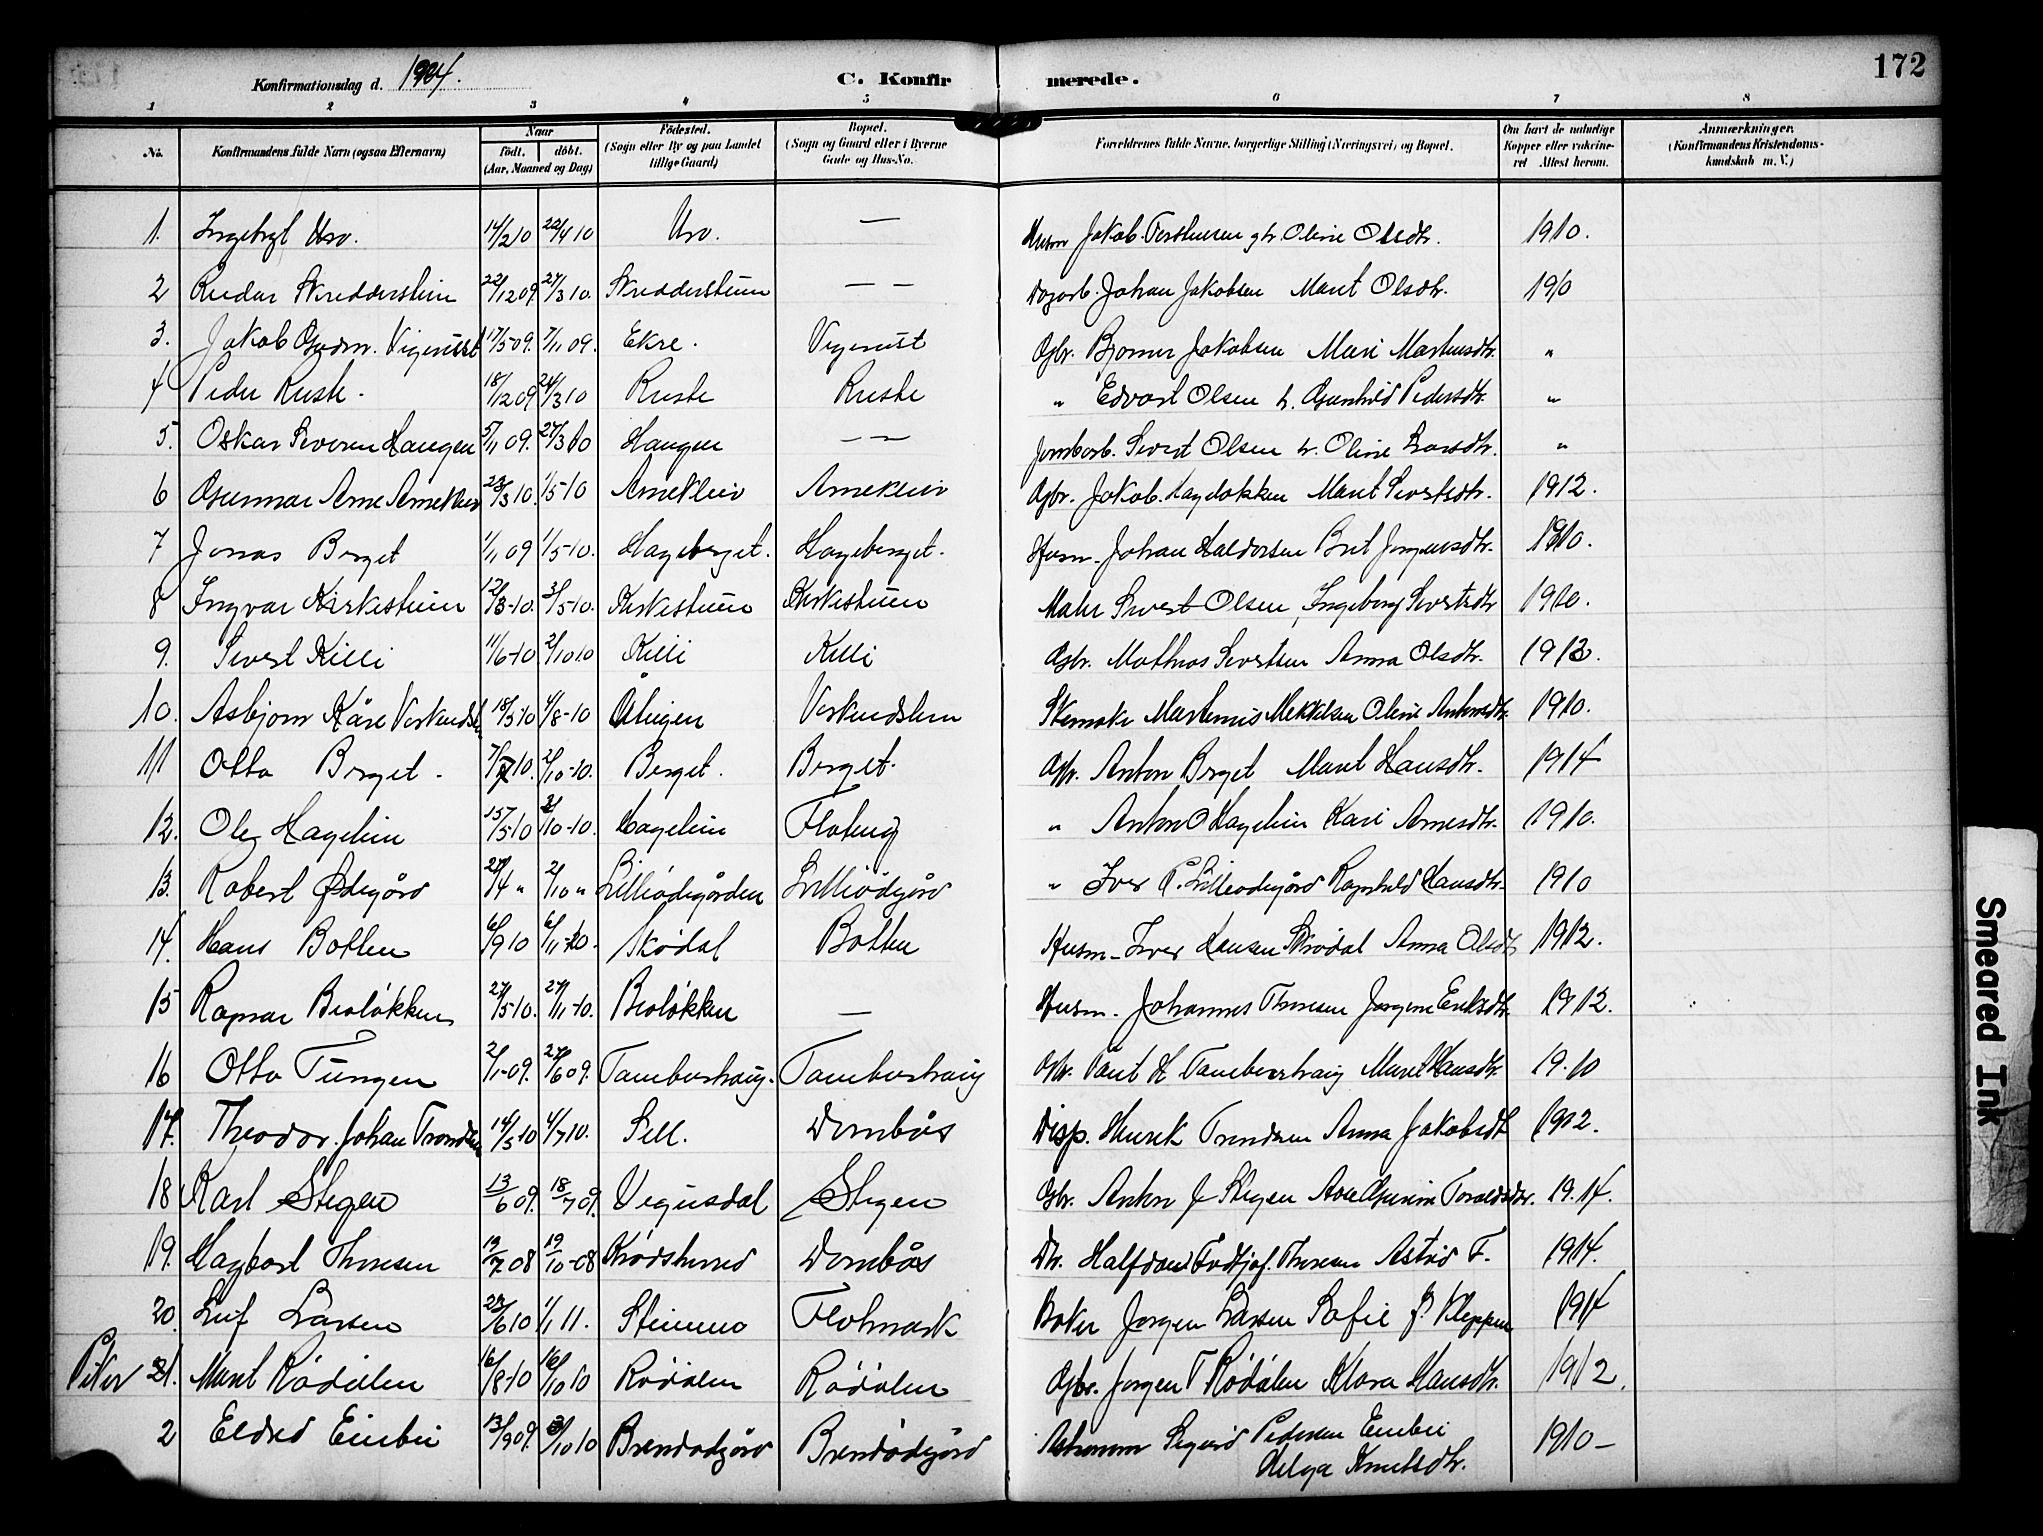 Konfirmationsdag d. 1924.
C. Konfirmerede.
172
1 2 3 4 5 6 7 8
No. Konfirmandens fulde Navn (ogsaa Efternavn) Naar født. døbt. (Aar, Maaned og Dag) Fødested. (Sogn eller By og paa Landet tillige Gaard) Bopæl. (Sogn og Gaard eller i Byerne Gade og Hus-No. Forældrenes fulde Navne, borgerlige Stilling (Næringsvei) og Bopæl. Om havt de naturlige Kopper eller vakcineret Attest herom. Anmærkninger. (Konfirmandens Kristendomskundskab m. V.)
1. Uro. 14/2 10 22/4 10 Uro. — Husm Jakob Olsdtr. 1910.
2 Reidar Skredderstuen 22/12 09. 27/3 10. Skredderstuen — — Dagarb. Johan Jakobsen Marit Olsdtr. 1910
3. Jakob Gudm. Vigenust 17/5-09. 7/11 09. Ekre. Vigenust Gbr. Bjørner Jakobsen Mari Mathiasdtr. "
4 Peder Ruste. 18/12 09 24/3 10 Ruste Ruste " Edvart Olsen h. Gunhild Pedersdtr. "
5. Oskar Severin Haugen 5/11 09. 27/3 10 Haugen — — Jernbarb. Sivert Olsen h. Oline Larsdtr. "
6 Gunnar Arne Arneklev 23/3 10. 1/5-10 Arneklev Arneklev Gbr. Jakob Marit Sivertsdtr. 1912.
7 Jonas Berget 1/11 09 1/5-10. Hageberget. Hageberget. Husm. Johan Haldorsen Brit Jørgensdtr. 1910.
8 Ingvar Kirkestuen 12/3-10. 3/5-10. Kirkestuen Kirkestuen Maler Sivert Olsen, Ingeborg Sivertsdtr 1910.
9. Sivert Killi 11/6-10 2/10 10 Killi Killi Gbr. Mathias Sivertsen Anna Olsdtr. 1913.
10. Asbjørn Kåre 18/5 10 4/8-10 Verkendslien Skomaker Martinus Mikkelsen Oline Antonsdtr. 1910.
11 Otto Berget. 7/7 10. 2/10-10. Berget. Berget. Gbr. Anton Berget Marit Hansdtr. 1914
12. Ole Hagelien 15/5-10 2/10-10. Hagelien " Anton O Hagelien Kari Arnesdtr. 1910.
13. Robert Ødegård 24/4 " 2/10 " Lilleødegården Lilleødegård " Iver P. Lilleødegård Ragnhild Hansdtr. 1910
14. Hans Botten 6/9 10 6/11-10. Skødal Botten Husm. Iver Hansen Skrødal Anna Olsdtr 1912.
15 Ragnar Bioløkken 27/5-10. 27/11-10. Bioløkken — Husm. Johannes Thoresen Jørgine Eriksdtr. 1912.
16 Otto Tungen 2/1-09. 27/6 09. Tamburhaug. Tamburhaug Gbr. Paul H Tamburhaug Marit Hansdtr. 1910
17. Theodor Johan Trondsen 14/5 10 4/7 10. Sell. Dombås Disp. Henrik Trondsen Anna Jakobsdtr 1912.
18 Karl Stigen 13/6 09. 18/7 09. Vegusdal Stigen Gbr. Anton J Stigen 1914.
19. Hagbart Thoresen 19/7 08 19/10-08 Krødsherred Dombås Dr. Halfdan Fridtjof Thoresen Astrid F. 1914.
20. Leif Larsen 23/6 10 1/1 11. Flatmark Baker Jørgen Larsen Sofie f. Kleppen 1914
Piker 21. Marit Rødølen 16/8-10 16/10 10 Rødølen Rødølen Gbr. Jørgen T Rødølen Klara Hansdtr. 1912.
2 Eldrid Einbu 13/9 09. 3/10 10 Brendødegård Brendødegård Sigurd Pedersen Einbu
Helga Knutsdtr. 1910 —
Smeared Ink